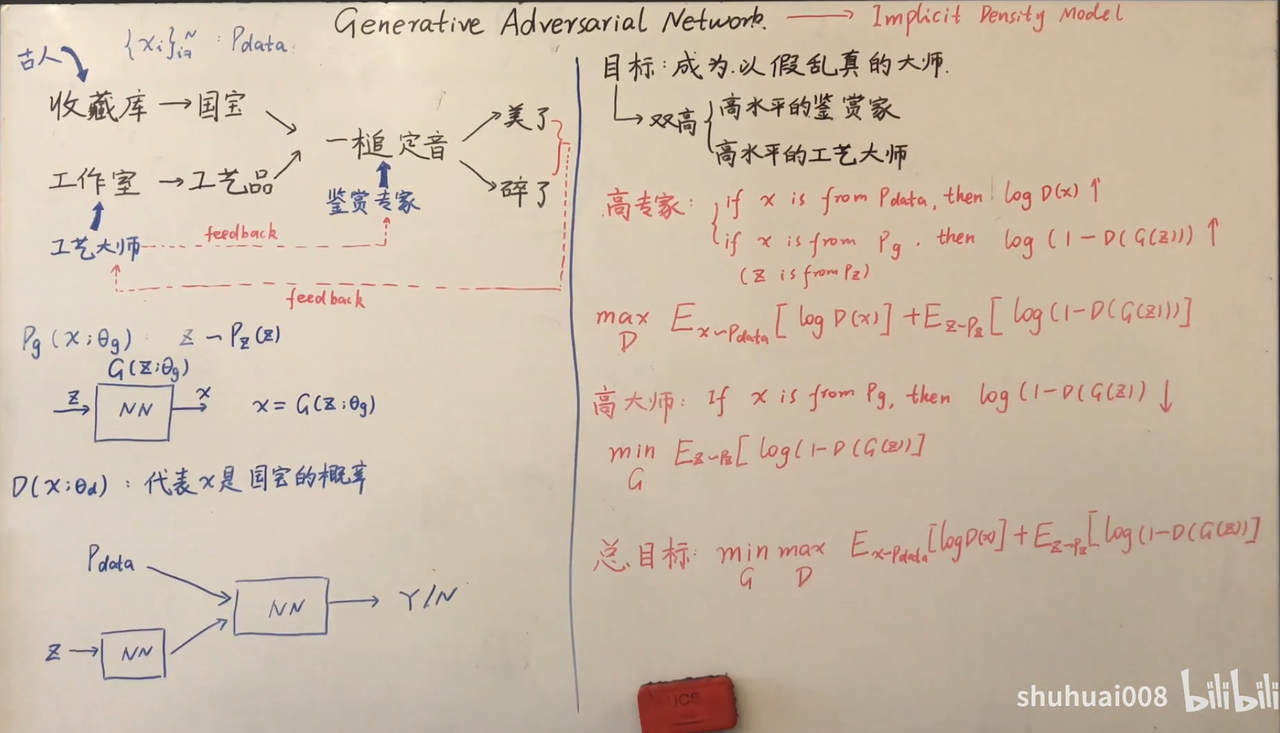 Generative Adversarial Network. ⟶ Implicit Density Model
古人
{xi}ᵢ₌₁ᴺ : Pdata
收藏库 → 国宝
一槌定音
美了
工作室 → 工艺品
鉴赏专家
碎了
工艺大师
feedback
feedback
Pg(x;θg) : z ~ Pz(z)
G(z;θg)
z → NN → x
x = G(z;θg)
D(x;θd) : 代表x是国宝的概率
Pdata
NN → Y/N
z → NN
目标:成为以假乱真的大师.
双高 { 高水平的鉴赏家
高水平的工艺大师
高专家: { if x is from Pdata, then log D(x) ↑
if x is from Pg, then log (1-D(G(z))) ↑
(z is from Pz)
max_D E_{x~Pdata}[log D(x)] + E_{z~Pz}[log(1-D(G(z)))]
高大师: If x is from Pg, then log (1-D(G(z)) ↓
min_G E_{z~Pz}[log(1-D(G(z))]
总目标: min_G max_D E_{x~Pdata}[log D(x)] + E_{z~Pz}[log(1-D(G(z))]
shuhuai008 bilibili